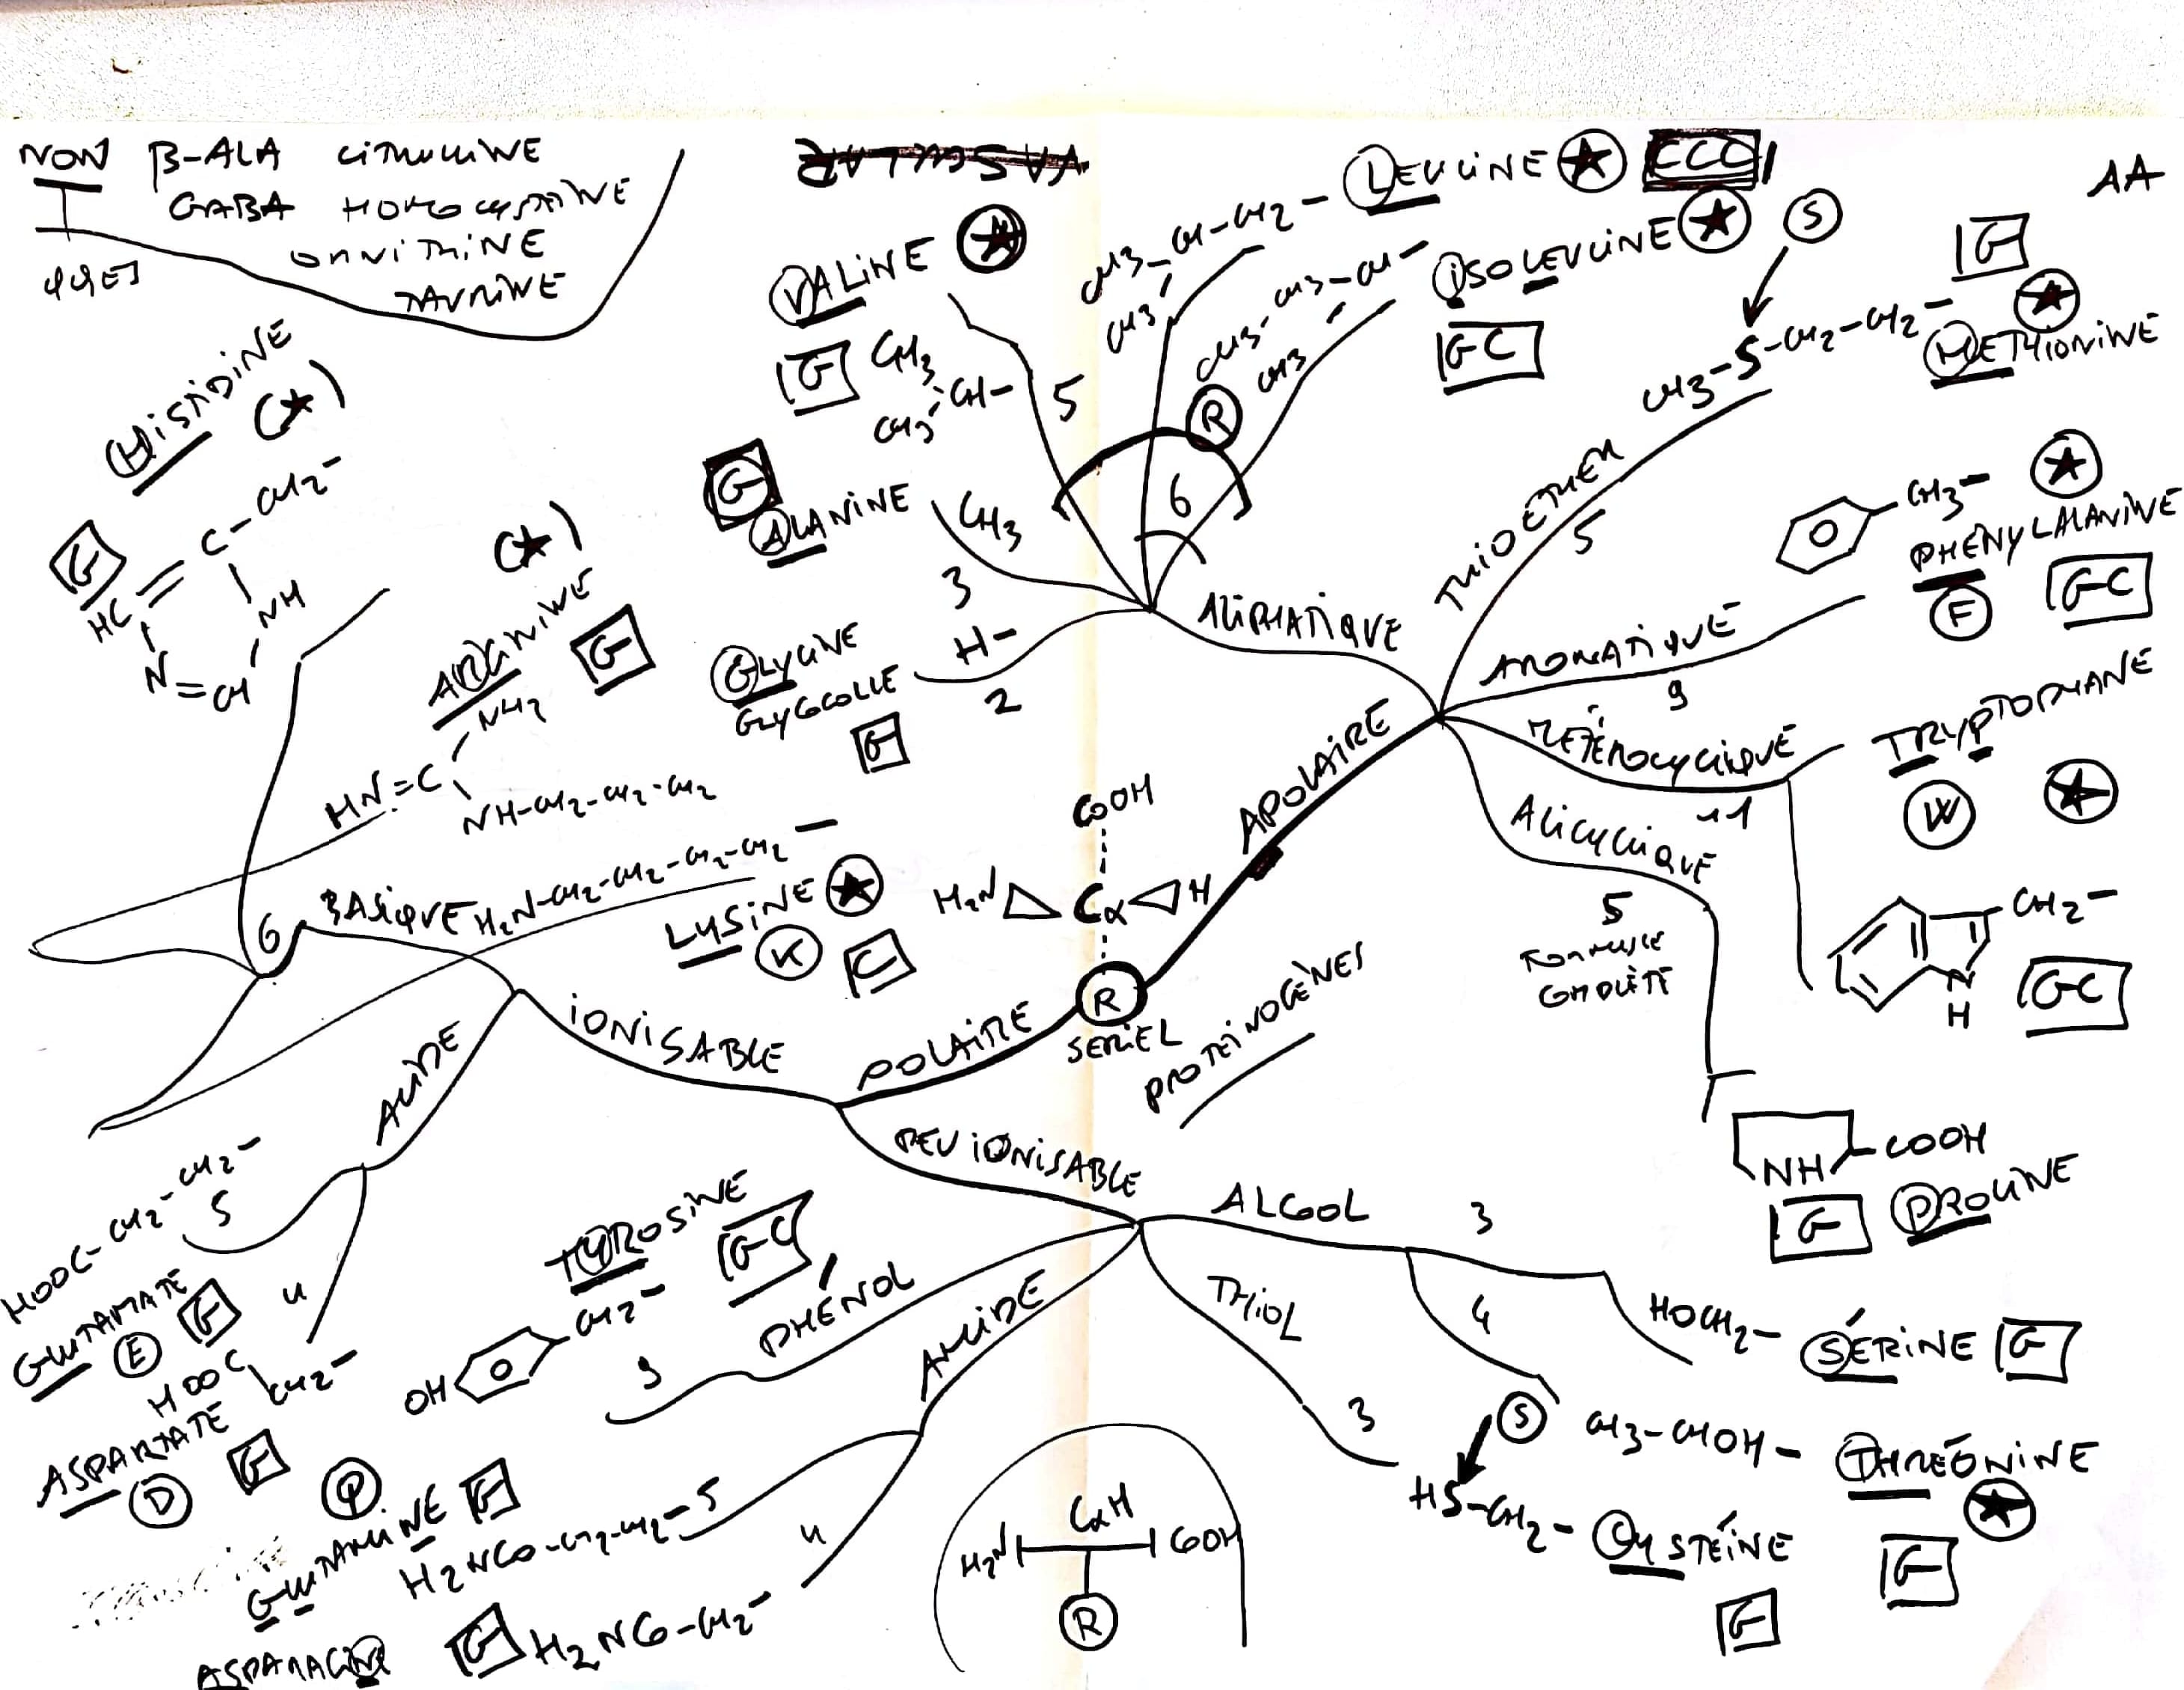 NON β-ALA CITRULLINE
GABA HOMOCYSTÉINE
ORNITHINE
TAURINE
AA
LEUCINE ★
CH3-CH-CH2-
CH3
ISOLEUCINE ★
CH3-CH3-CH-
CH3
GC
R
6
VALINE ★
G
CH3
CH-
CH3
5
G
ALANINE
CH3
3
GLYCINE
GLYCOLLE
H-
2
G
ALIPHATIQUE
S
G
★
CH3-S-CH2-CH2-
MÉTHIONINE
THIOETHER
5
CH3-
★
PHÉNYLALANINE
F
GC
AROMATIQUE
9
HÉTÉROCYCLIQUE
11
TRYPTOPHANE
W
★
CH2-
N
H
GC
ALICYCLIQUE
5
FORMULE
COMPLÈTE
NH
COOH
G
PROLINE
APOLAIRE
COOH
H2N Cα H
R
SERIEL
PROTEINOGÈNES
POLAIRE
IONISABLE
BASIQUE
6
HISTIDINE
(★)
G
C-CH2-
HC
NH
N=CH
(★)
ARGININE
G
NH2
HN=C
NH-CH2-CH2-CH2
H2N-CH2-CH2-CH2-CH2-
LYSINE ★
K
C
ACIDE
HOOC-CH2-CH2-
5
GLUTAMATE
E
G
4
HOOC
CH2-
ASPARTATE
D
G
PEU IONISABLE
PHÉNOL
9
TYROSINE
GC
OH
CH2-
AMIDE
Q
GLUTAMINE
G
H2NCO-CH2-CH2-
5
4
ASPARAGINE
G
H2NCO-CH2-
ALCOOL
3
HOCH2-
SÉRINE
G
4
CH3-CHOH-
THRÉONINE
★
G
THIOL
3
S
HS-CH2-
CYSTÉINE
G
CαH
H2N
COOH
R